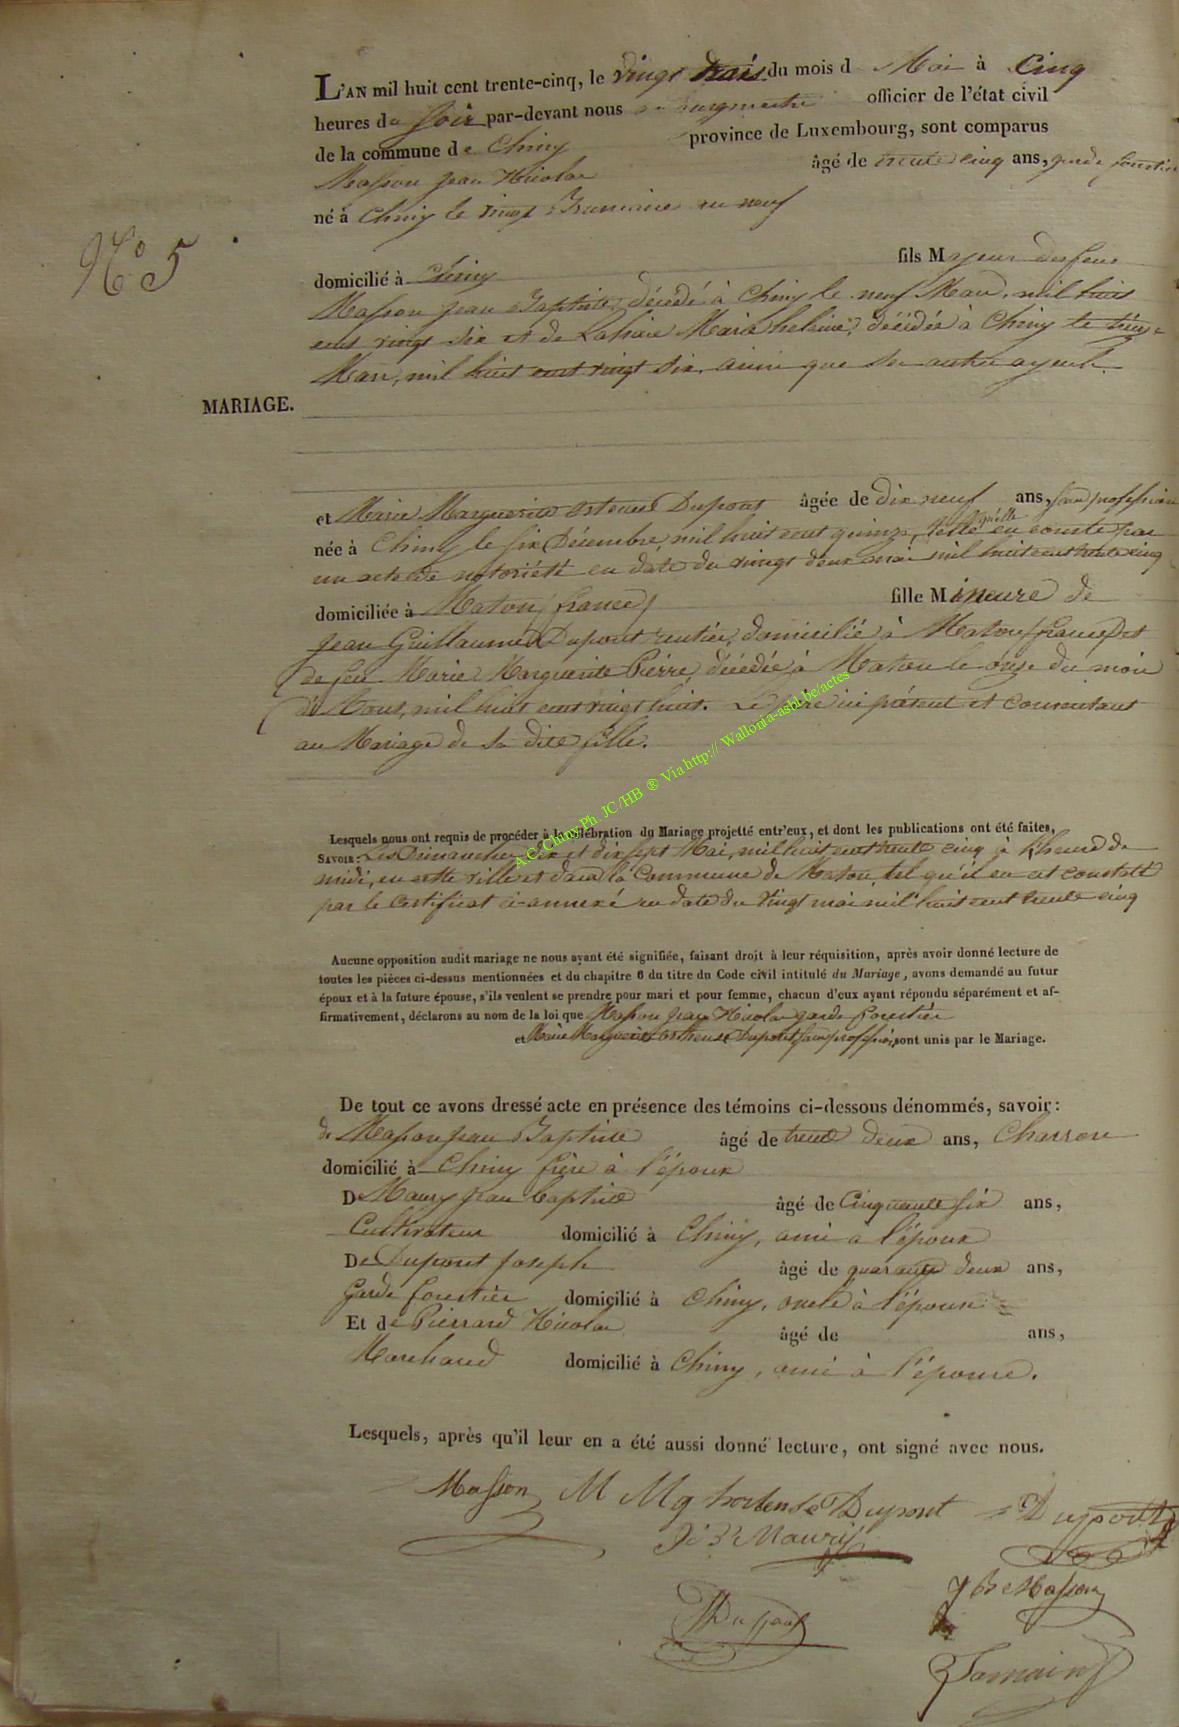 L'AN mil huit cent trente-cinq, le vingt trois du mois d Mai à Cinq
heures du soir par-devant nous bourgmestre officier de l'état civil
de la commune de Chiny province de Luxembourg, sont comparus
Masson jean Nicolas âgé de trente cinq ans, garde forestier
né à Chiny le vingt Brumaire an neuf
N° 5
domicilié à Chiny fils Majeur des feus
Masson jean Baptiste, décédé à Chiny le neuf Mars, mil huit
cent vingt six et de Lahaie Marie helaine, décédée à Chiny le
Mars, mil huit cent vingt six, ainsi que ses autres ayeuls.
MARIAGE.
et Marie Marguerite ortense Dupont âgée de dix neuf ans, sans profession
née à Chiny le six Décembre mil huit cent quinze, telle qu'elle en conste par
un acte de notoriété en date du vingt deux mai mil huit cent trente cinq
domiciliée à Maton (france) fille Mineure de
jean Guillaume Dupont rentier, domicilié à Maton (france) et
de feu Marie Marguerite Pierre, décédée à Maton le onze du mois
d'Aout, mil huit cent vingt huit. Le père ici présent et consentant
au Mariage de sa dite fille.
A.C. Chiny Ph. JC/HB ® Via http://Wallonia-asbl.be/actes
Lesquels nous ont requis de procéder à la célébration du Mariage projetté entr'eux, et dont les publications ont été faites,
SAVOIR: Les Dimanches dix et dix sept Mai, mil huit cent trente cinq à l'heure de
midi, en cette ville et dans la Commune de Maton, tel qu'il en est constaté
par le certificat ci-annexé en date du vingt mai mil huit cent trente cinq
Aucune opposition audit mariage ne nous ayant été signifiée, faisant droit à leur réquisition, après avoir donné lecture de
toutes les pièces ci-dessus mentionnées et du chapitre 6 du titre du Code civil intitulé du Mariage, avons demandé au futur
époux et à la future épouse, s'ils veulent se prendre pour mari et pour femme, chacun d'eux ayant répondu séparément et af-
firmativement, déclarons au nom de la loi que Masson jean Nicolas garde forestier
et Marie Marguerite ortense Dupont sans profession, sont unis par le Mariage.
De tout ce avons dressé acte en présence des témoins ci-dessous dénommés, savoir:
de Masson jean Baptiste âgé de trente deux ans, Charron
domicilié à Chiny frère à l'époux
De Maury jean baptiste âgé de Cinquante six ans,
Cultivateur domicilié à Chiny, ami à l'époux
De Dupont joseph âgé de quarante deux ans,
Garde forestier domicilié à Chiny, oncle à l'épouse
Et de Pierrard Nicolas âgé de ans,
Marchand domicilié à Chiny, ami à l'épouse.
Lesquels, après qu'il leur en a été aussi donné lecture, ont signé avec nous.
Masson M Mg hortense Dupont Dupont
Maury
JBe Masson
Dupont